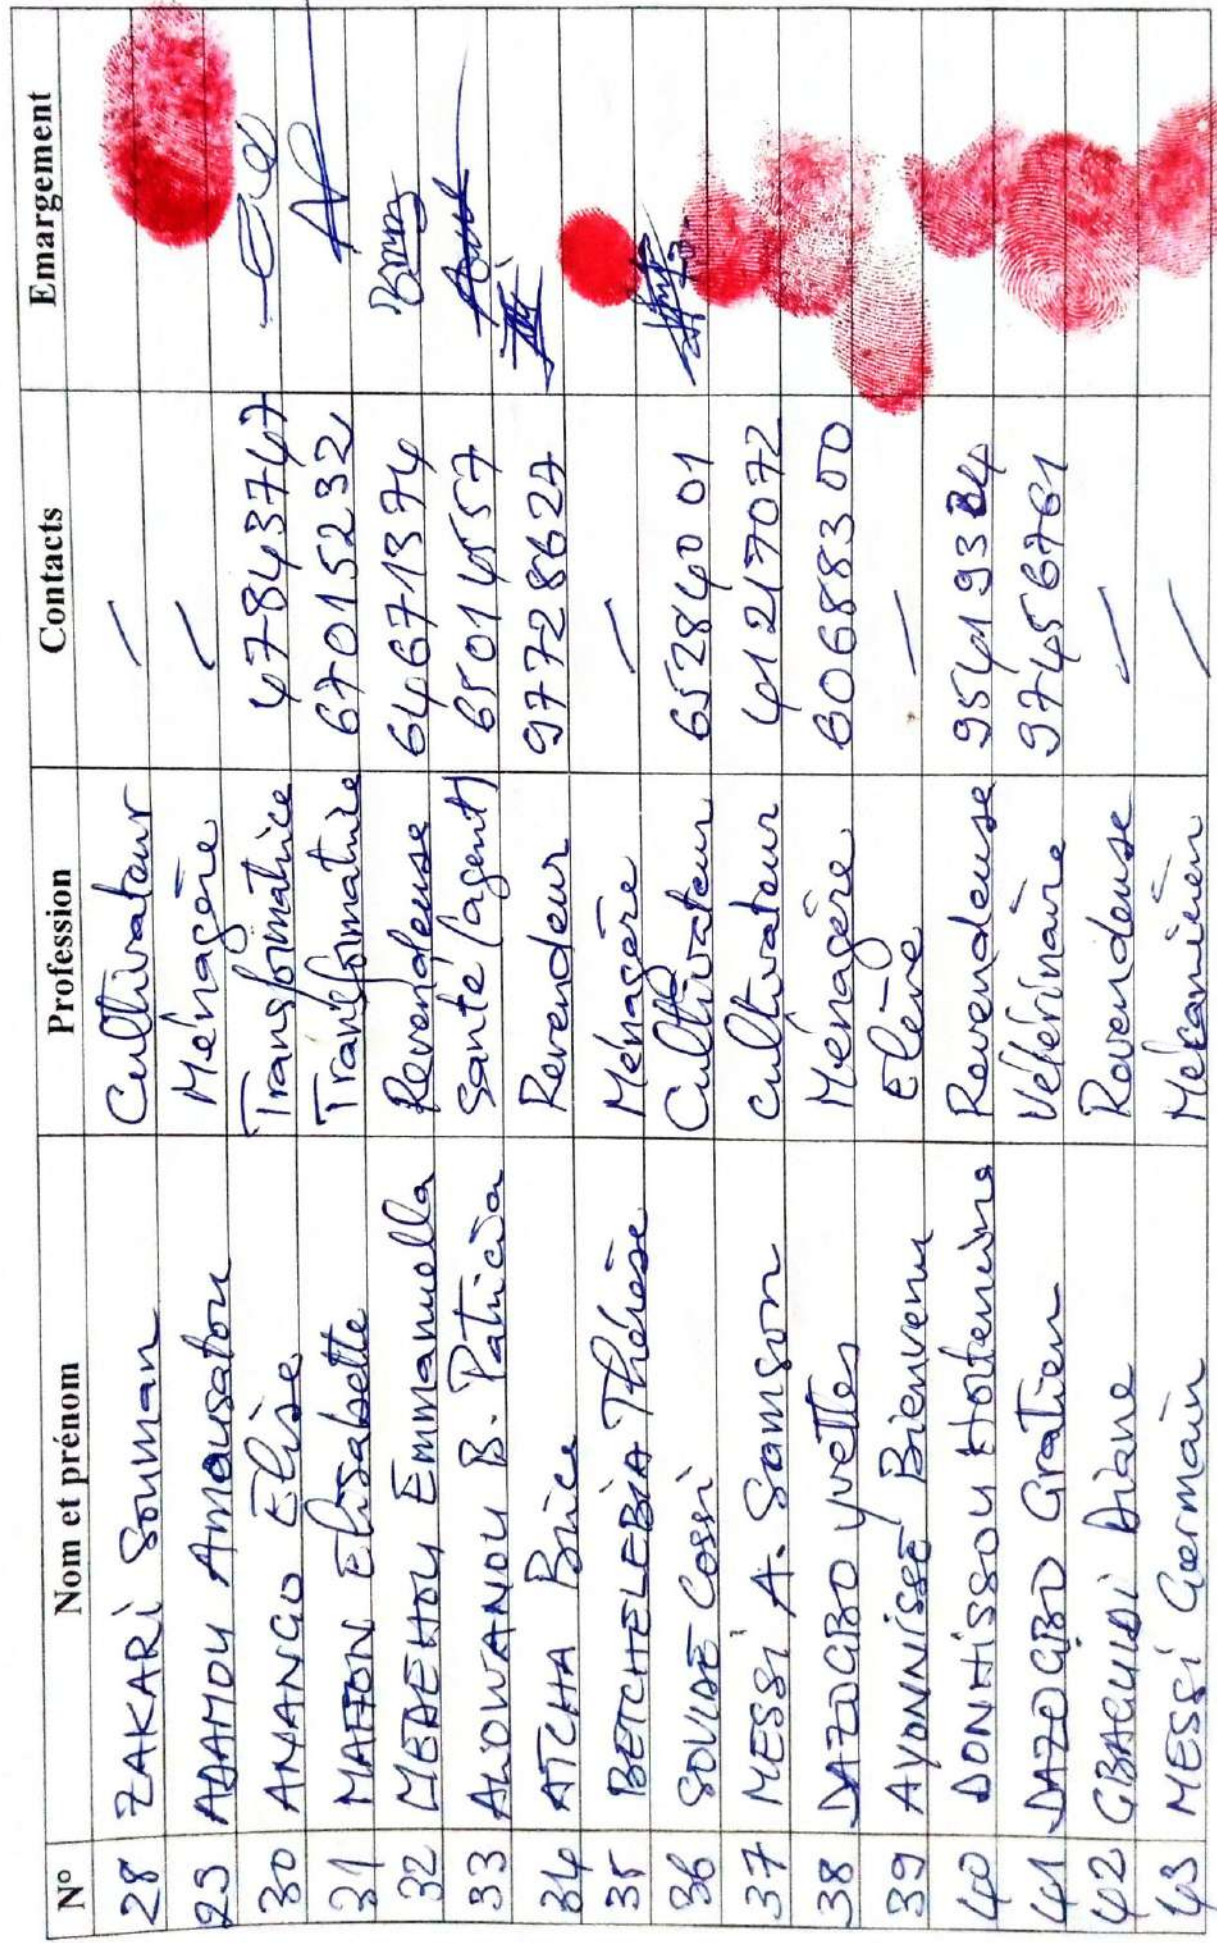 N° Nom et prénom Profession Contacts Emargement
28 ZAKARI Souman Cultivateur —
29 ADAMOU Amousatou Ménagère —
30 AMANGO Elise Transformatrice 47843747
31 MAFFON Elisabette Transformatrice 67015232
32 MEDEHOU Emmanuella Revendeuse 64671374
33 ALOWANOU B. Patricia Santé (agent) 65014557
34 ATCHA Brice Revendeur 97728627
35 BETCHELEBIA Thérèse Ménagère —
36 SOVIDÉ Cossi Cultivateur 65284001
37 MESSI A. Samson Cultivateur 41217072
38 DAZOGBO yvettes Ménagère 60688300
39 AYONNISSÈ Bienvenu Elève —
40 DONHISSOU Hortensins Revendeuse 95419384
41 DAZOGBO Gratien Vétérinaire 97456761
42 GBAGUIDI Diane Revendeuse —
43 MESSI Germain Mécanicien —